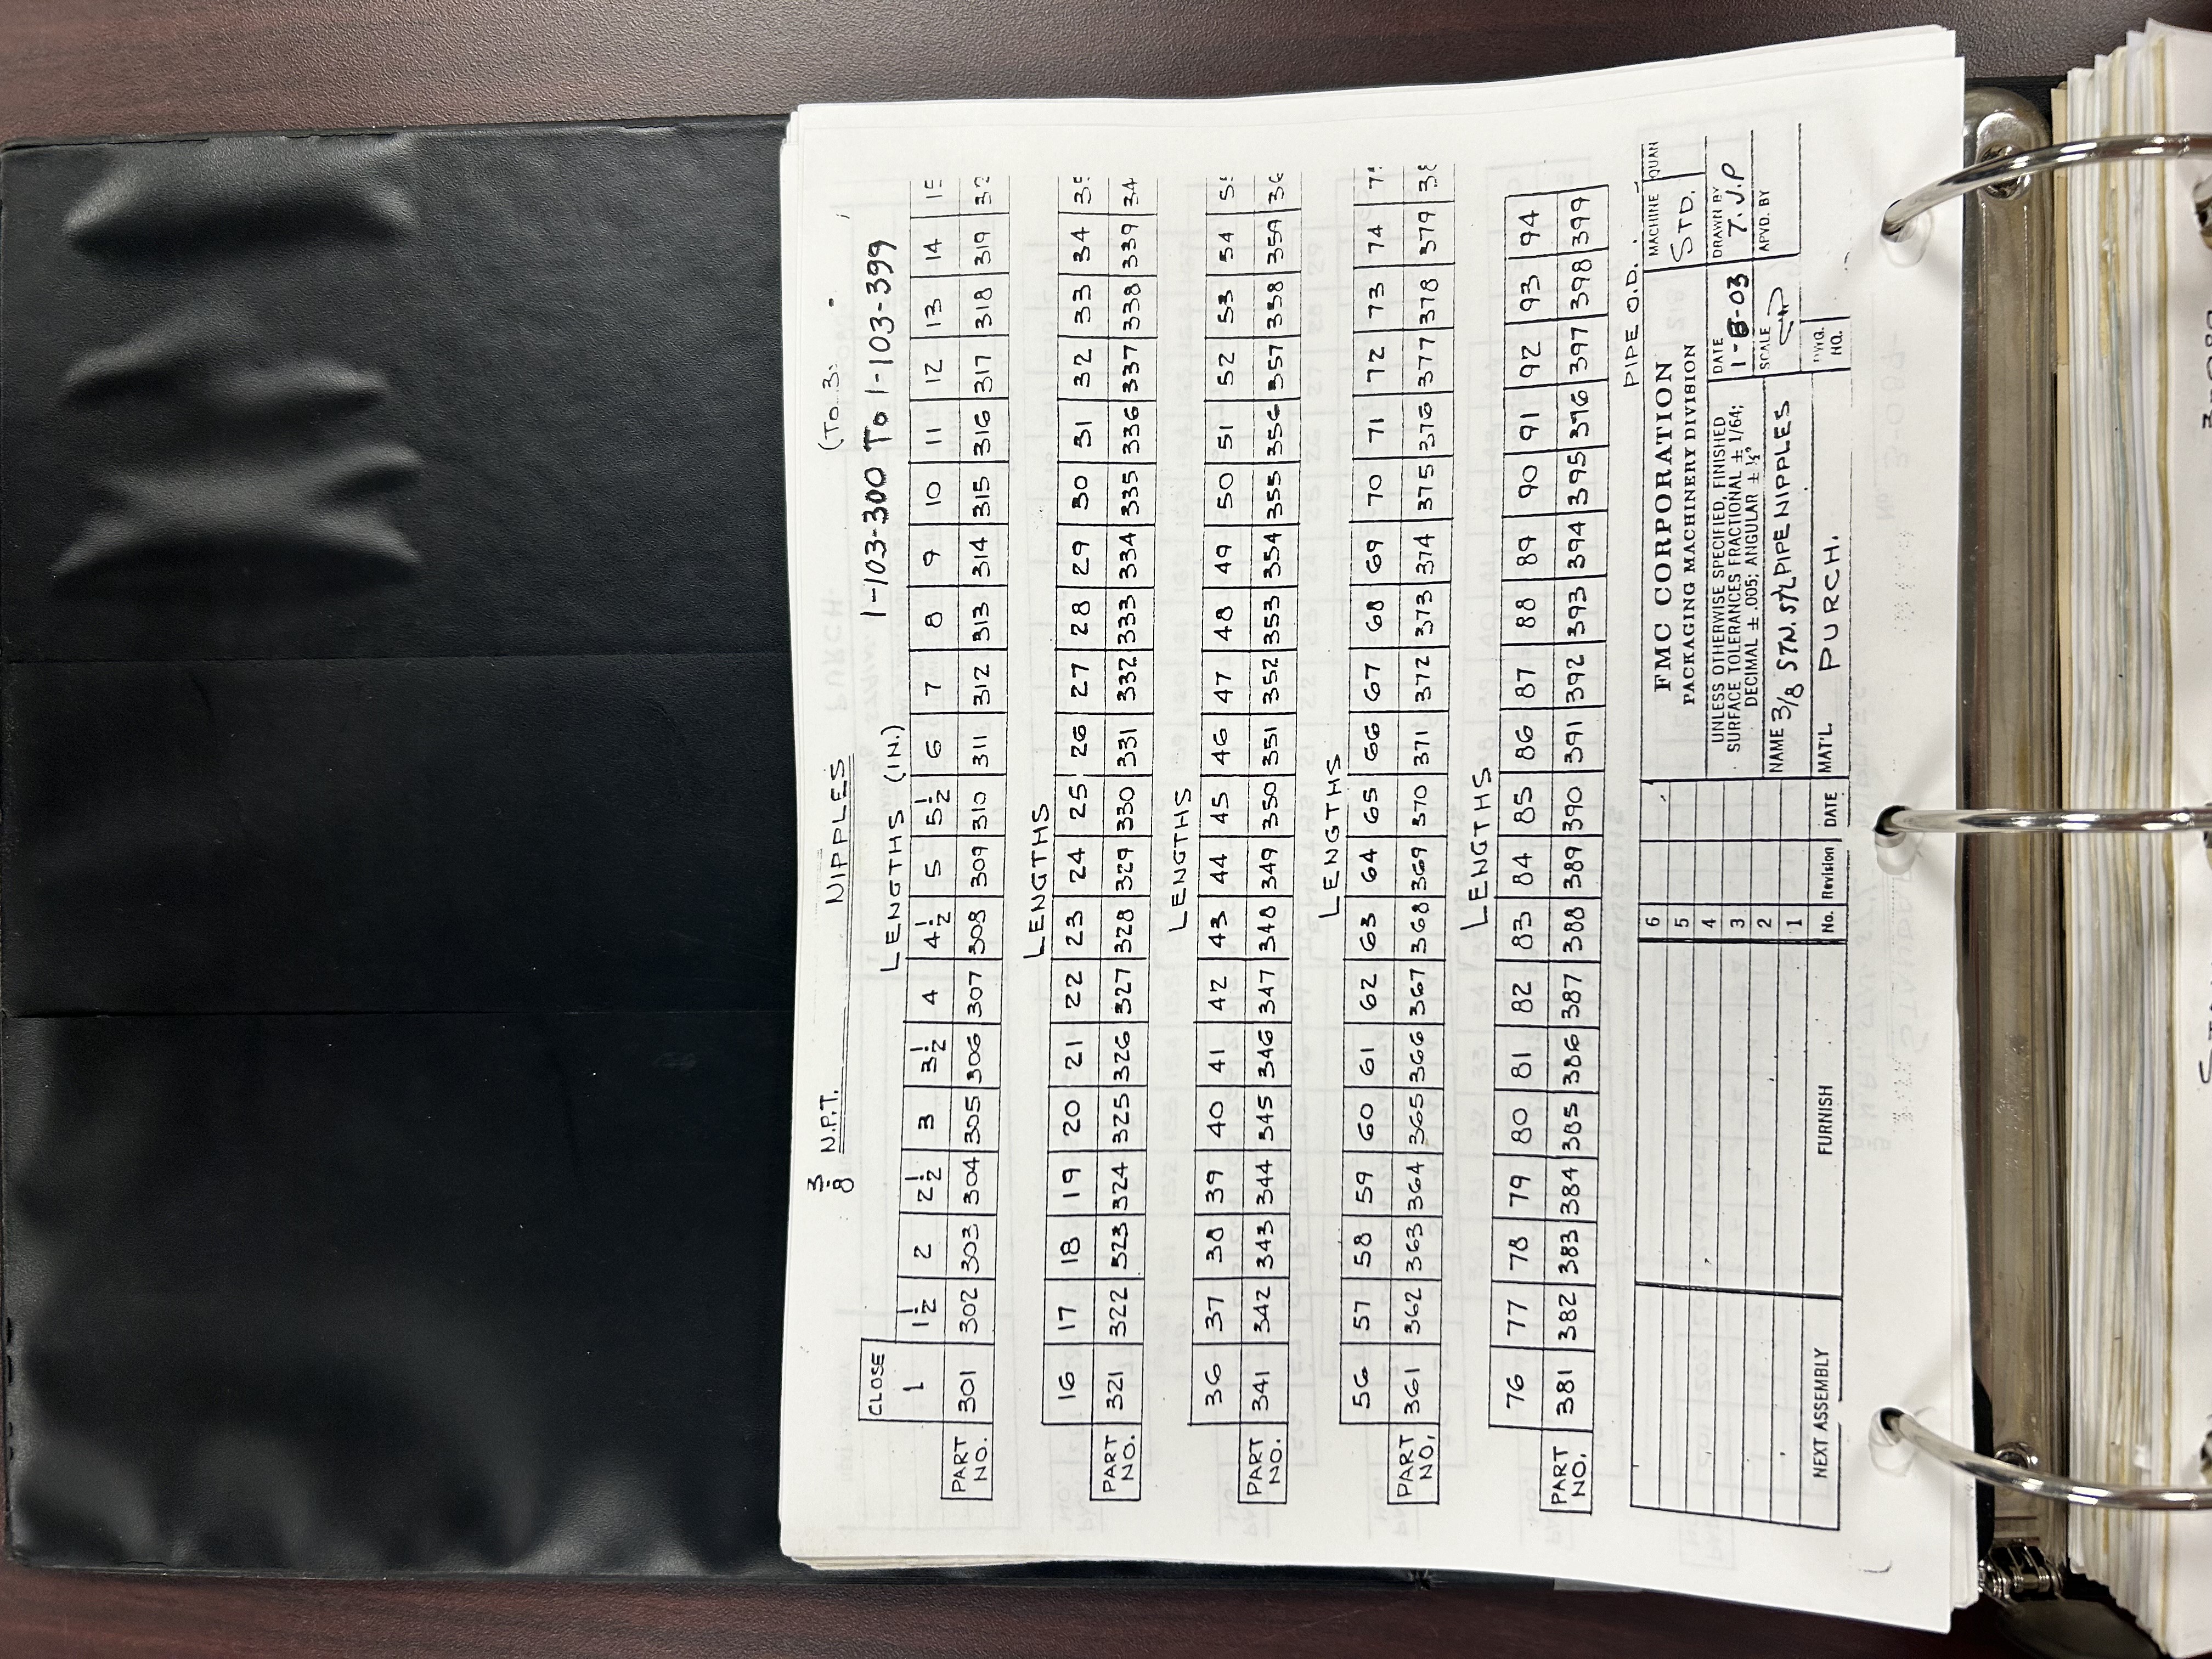 3/8 N.P.T. NIPPLES (To 3:
1-103-300 To 1-103-399
CLOSE LENGTHS (IN.)
1 1 1/2 2 2 1/2 3 3 1/2 4 4 1/2 5 5 1/2 6 7 8 9 10 11 12 13 14 15
PART NO. 301 302 303 304 305 306 307 308 309 310 311 312 313 314 315 316 317 318 319
LENGTHS
16 17 18 19 20 21 22 23 24 25 26 27 28 29 30 31 32 33 34
PART NO. 321 322 323 324 325 326 327 328 329 330 331 332 333 334 335 336 337 338 339 34
LENGTHS
36 37 38 39 40 41 42 43 44 45 46 47 48 49 50 51 52 53 54
PART NO. 341 342 343 344 345 346 347 348 349 350 351 352 353 354 355 356 357 358 359
LENGTHS
56 57 58 59 60 61 62 63 64 65 66 67 68 69 70 71 72 73 74
PART NO. 361 362 363 364 365 366 367 368 369 370 371 372 373 374 375 376 377 378 379
LENGTHS
76 77 78 79 80 81 82 83 84 85 86 87 88 89 90 91 92 93 94
PART NO. 381 382 383 384 385 386 387 388 389 390 391 392 393 394 395 396 397 398 399
PIPE O.D.
6
5
4
3
2
1
NEXT ASSEMBLY FURNISH No. Revision DATE
FMC CORPORATION
PACKAGING MACHINERY DIVISION
UNLESS OTHERWISE SPECIFIED, FINISHED
SURFACE TOLERANCES FRACTIONAL ± 1/64;
DECIMAL ± .005; ANGULAR ± ½°
NAME 3/8 STN. STL PIPE NIPPLES
MAT'L PURCH.
MACHINE STD.
QUAN
DATE 1-8-03
DRAWN BY T.J.P
SCALE
APVD. BY
DWG. NO.